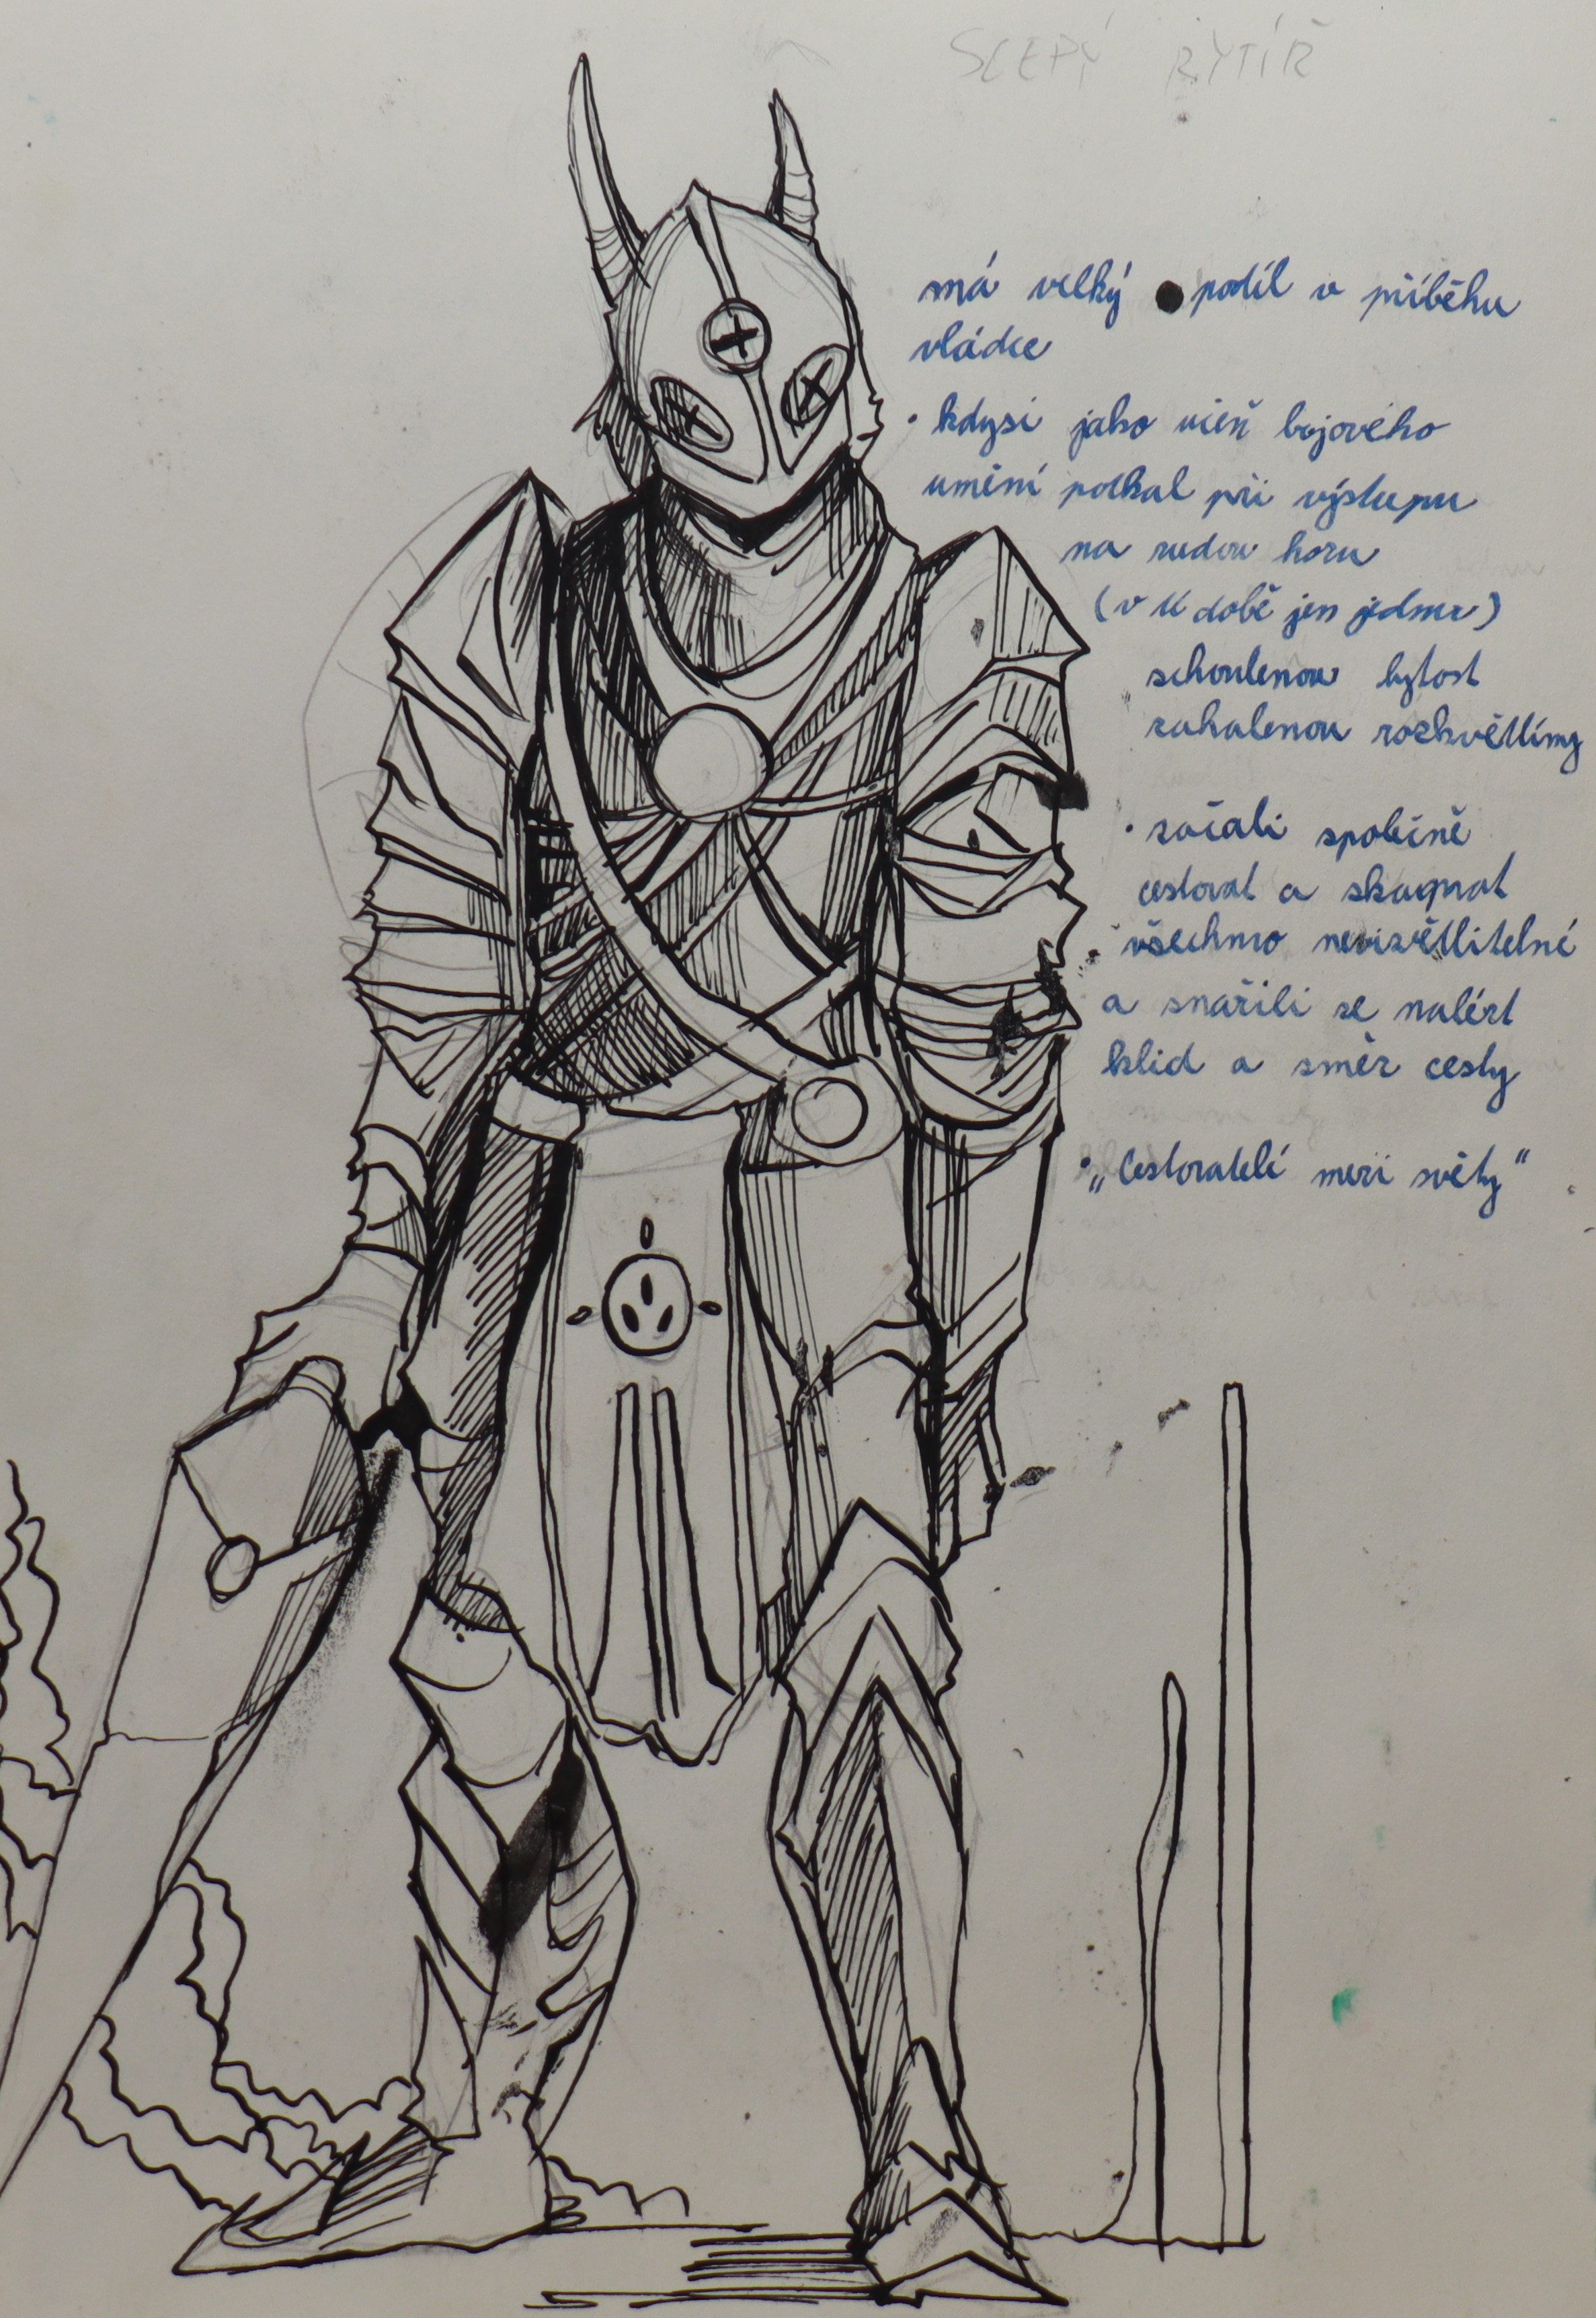 SLEPÝ RYTÍŘ
má velký podíl v příběhu
vládce
• kdysi jako učeň bojového
umění potkal při výstupu
na rudou horu
(v té době jen jednu)
schoulenou bytost
zahalenou rozkvětlímy
• začali společně
cestovat a zkoumat
všechno nevizvětlitelné
a snažili se nalézt
klid a směr cesty
• „Cestovatelé mezi světy“